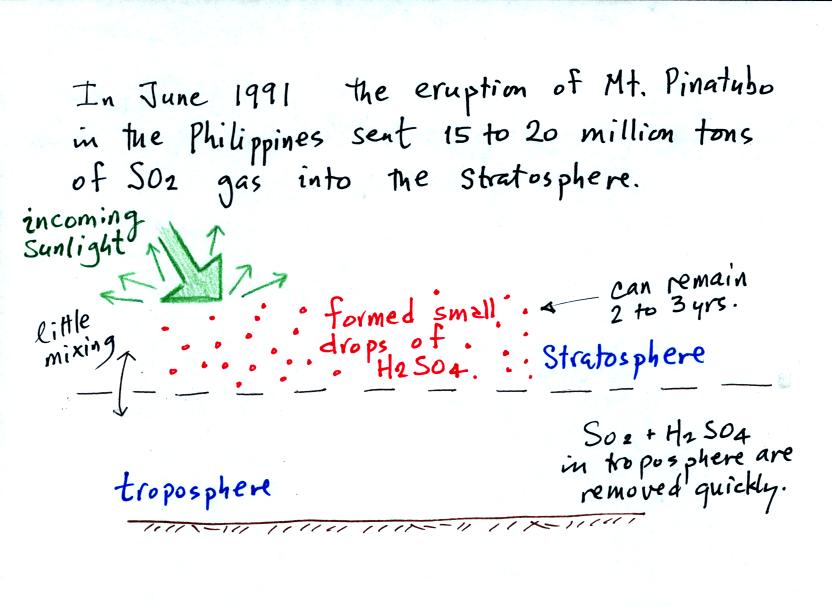 In June 1991 the eruption of Mt. Pinatubo
in the Philippines sent 15 to 20 million tons
of SO2 gas into the Stratosphere.
incoming
Sunlight
little
mixing
formed small
drops of
H2SO4.
can remain
2 to 3 yrs.
Stratosphere
troposphere
SO2 + H2SO4
in troposphere are
removed quickly.